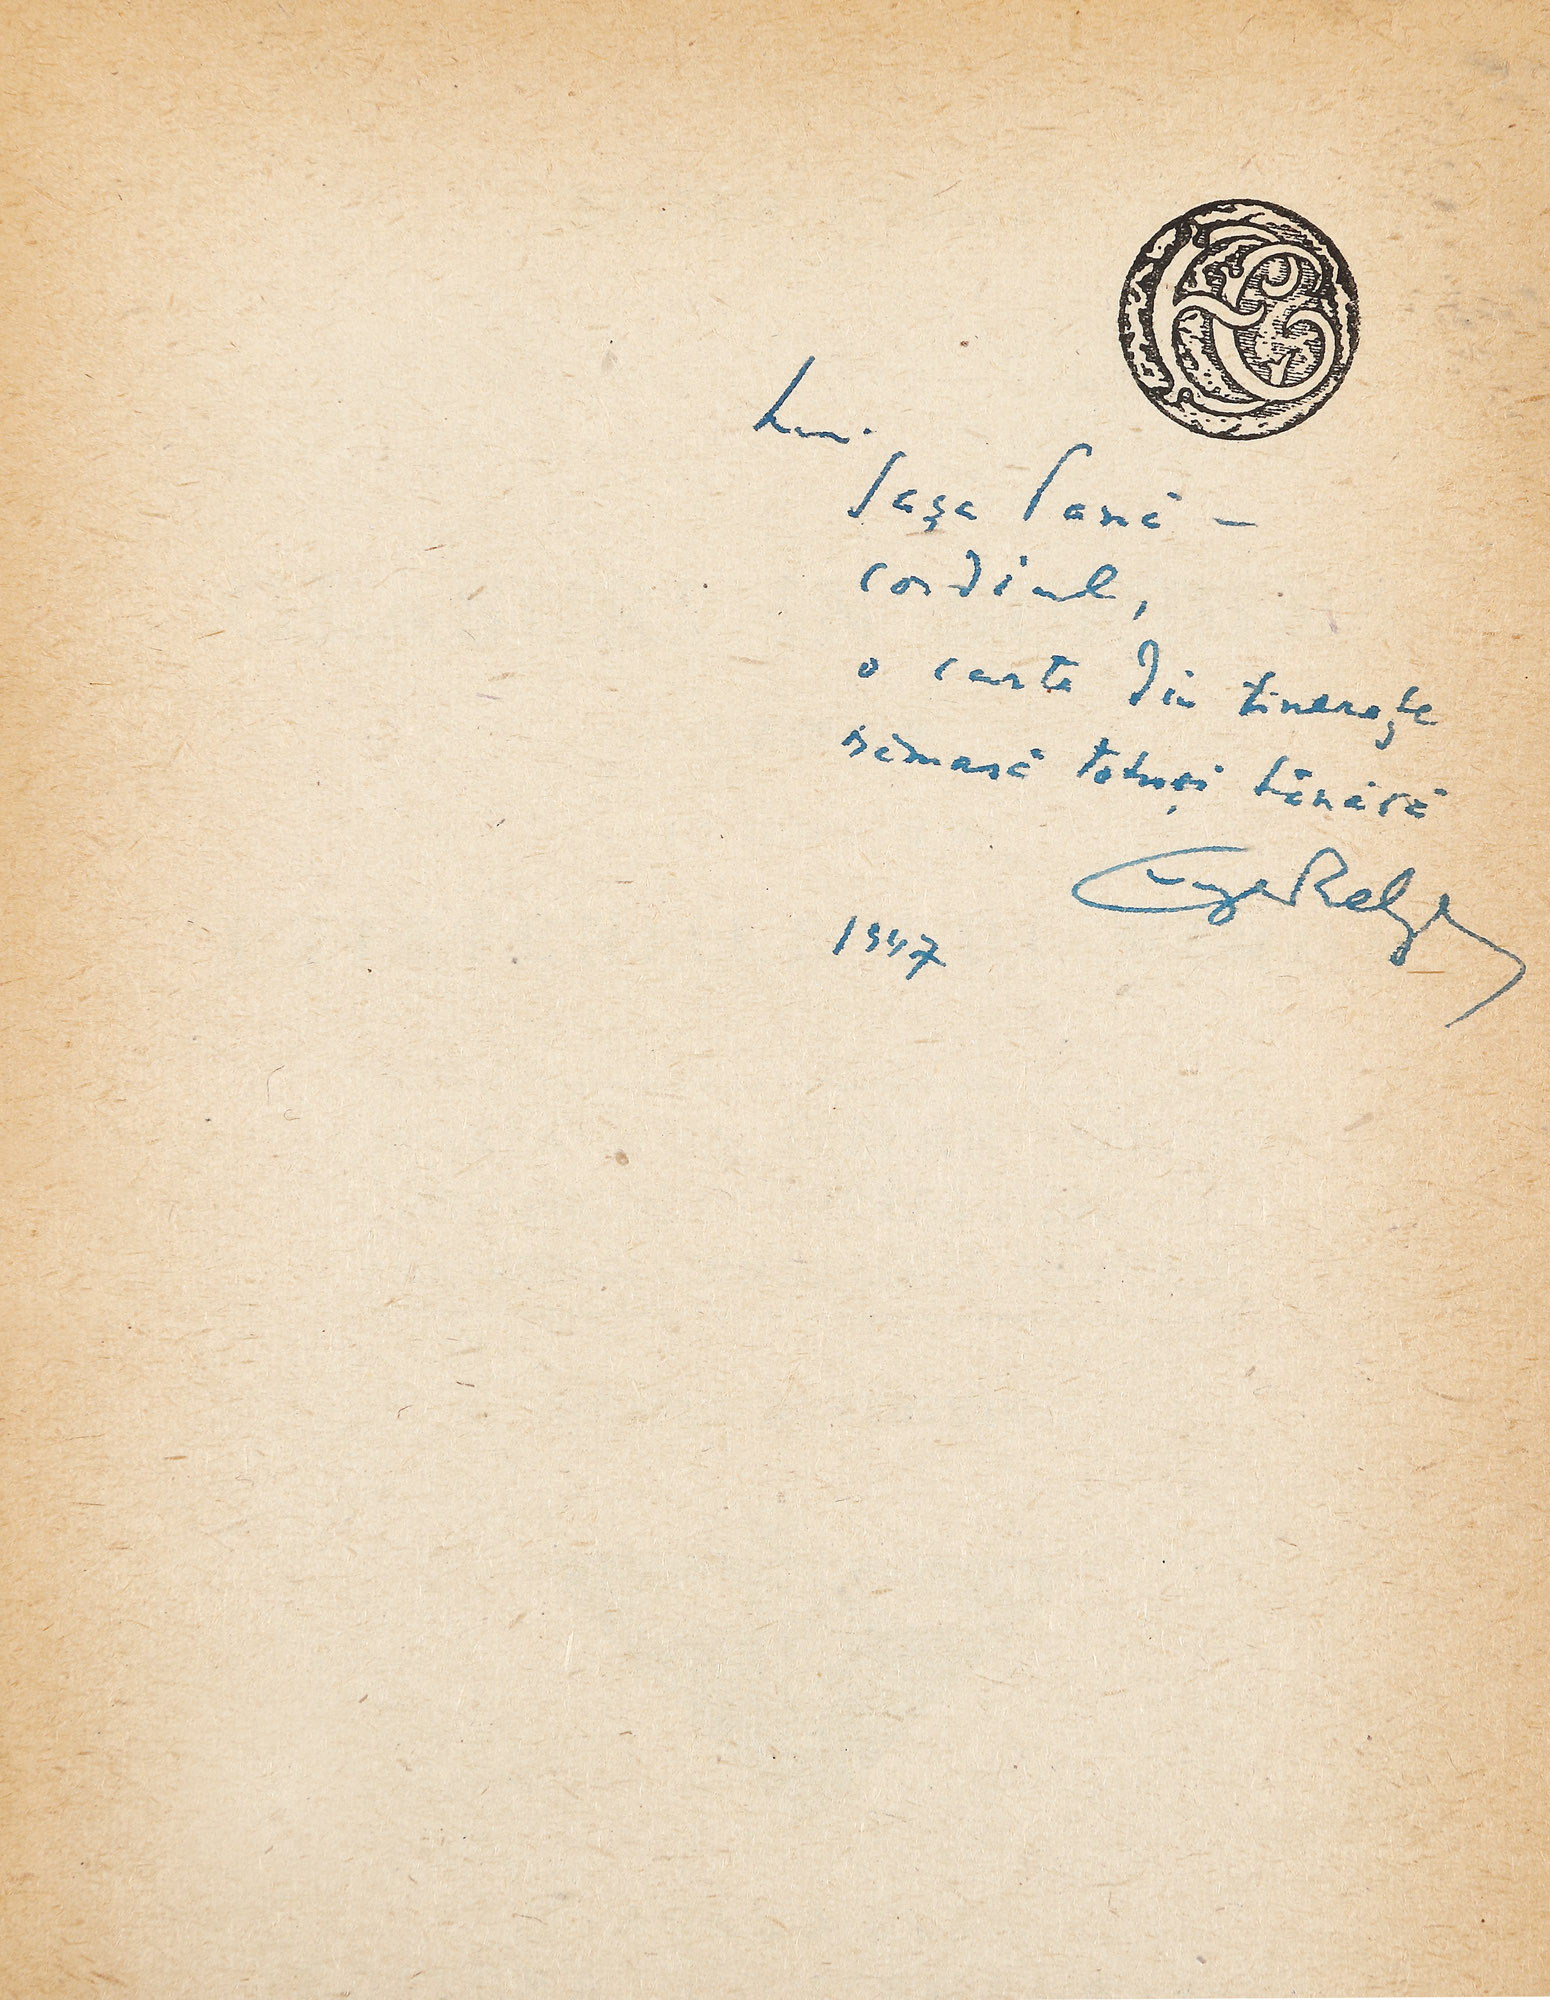 Lui
Sașa Pană –
cordial,
o carte din tinerețe
rămasă totuși tânără
Eugen Relgis
1947